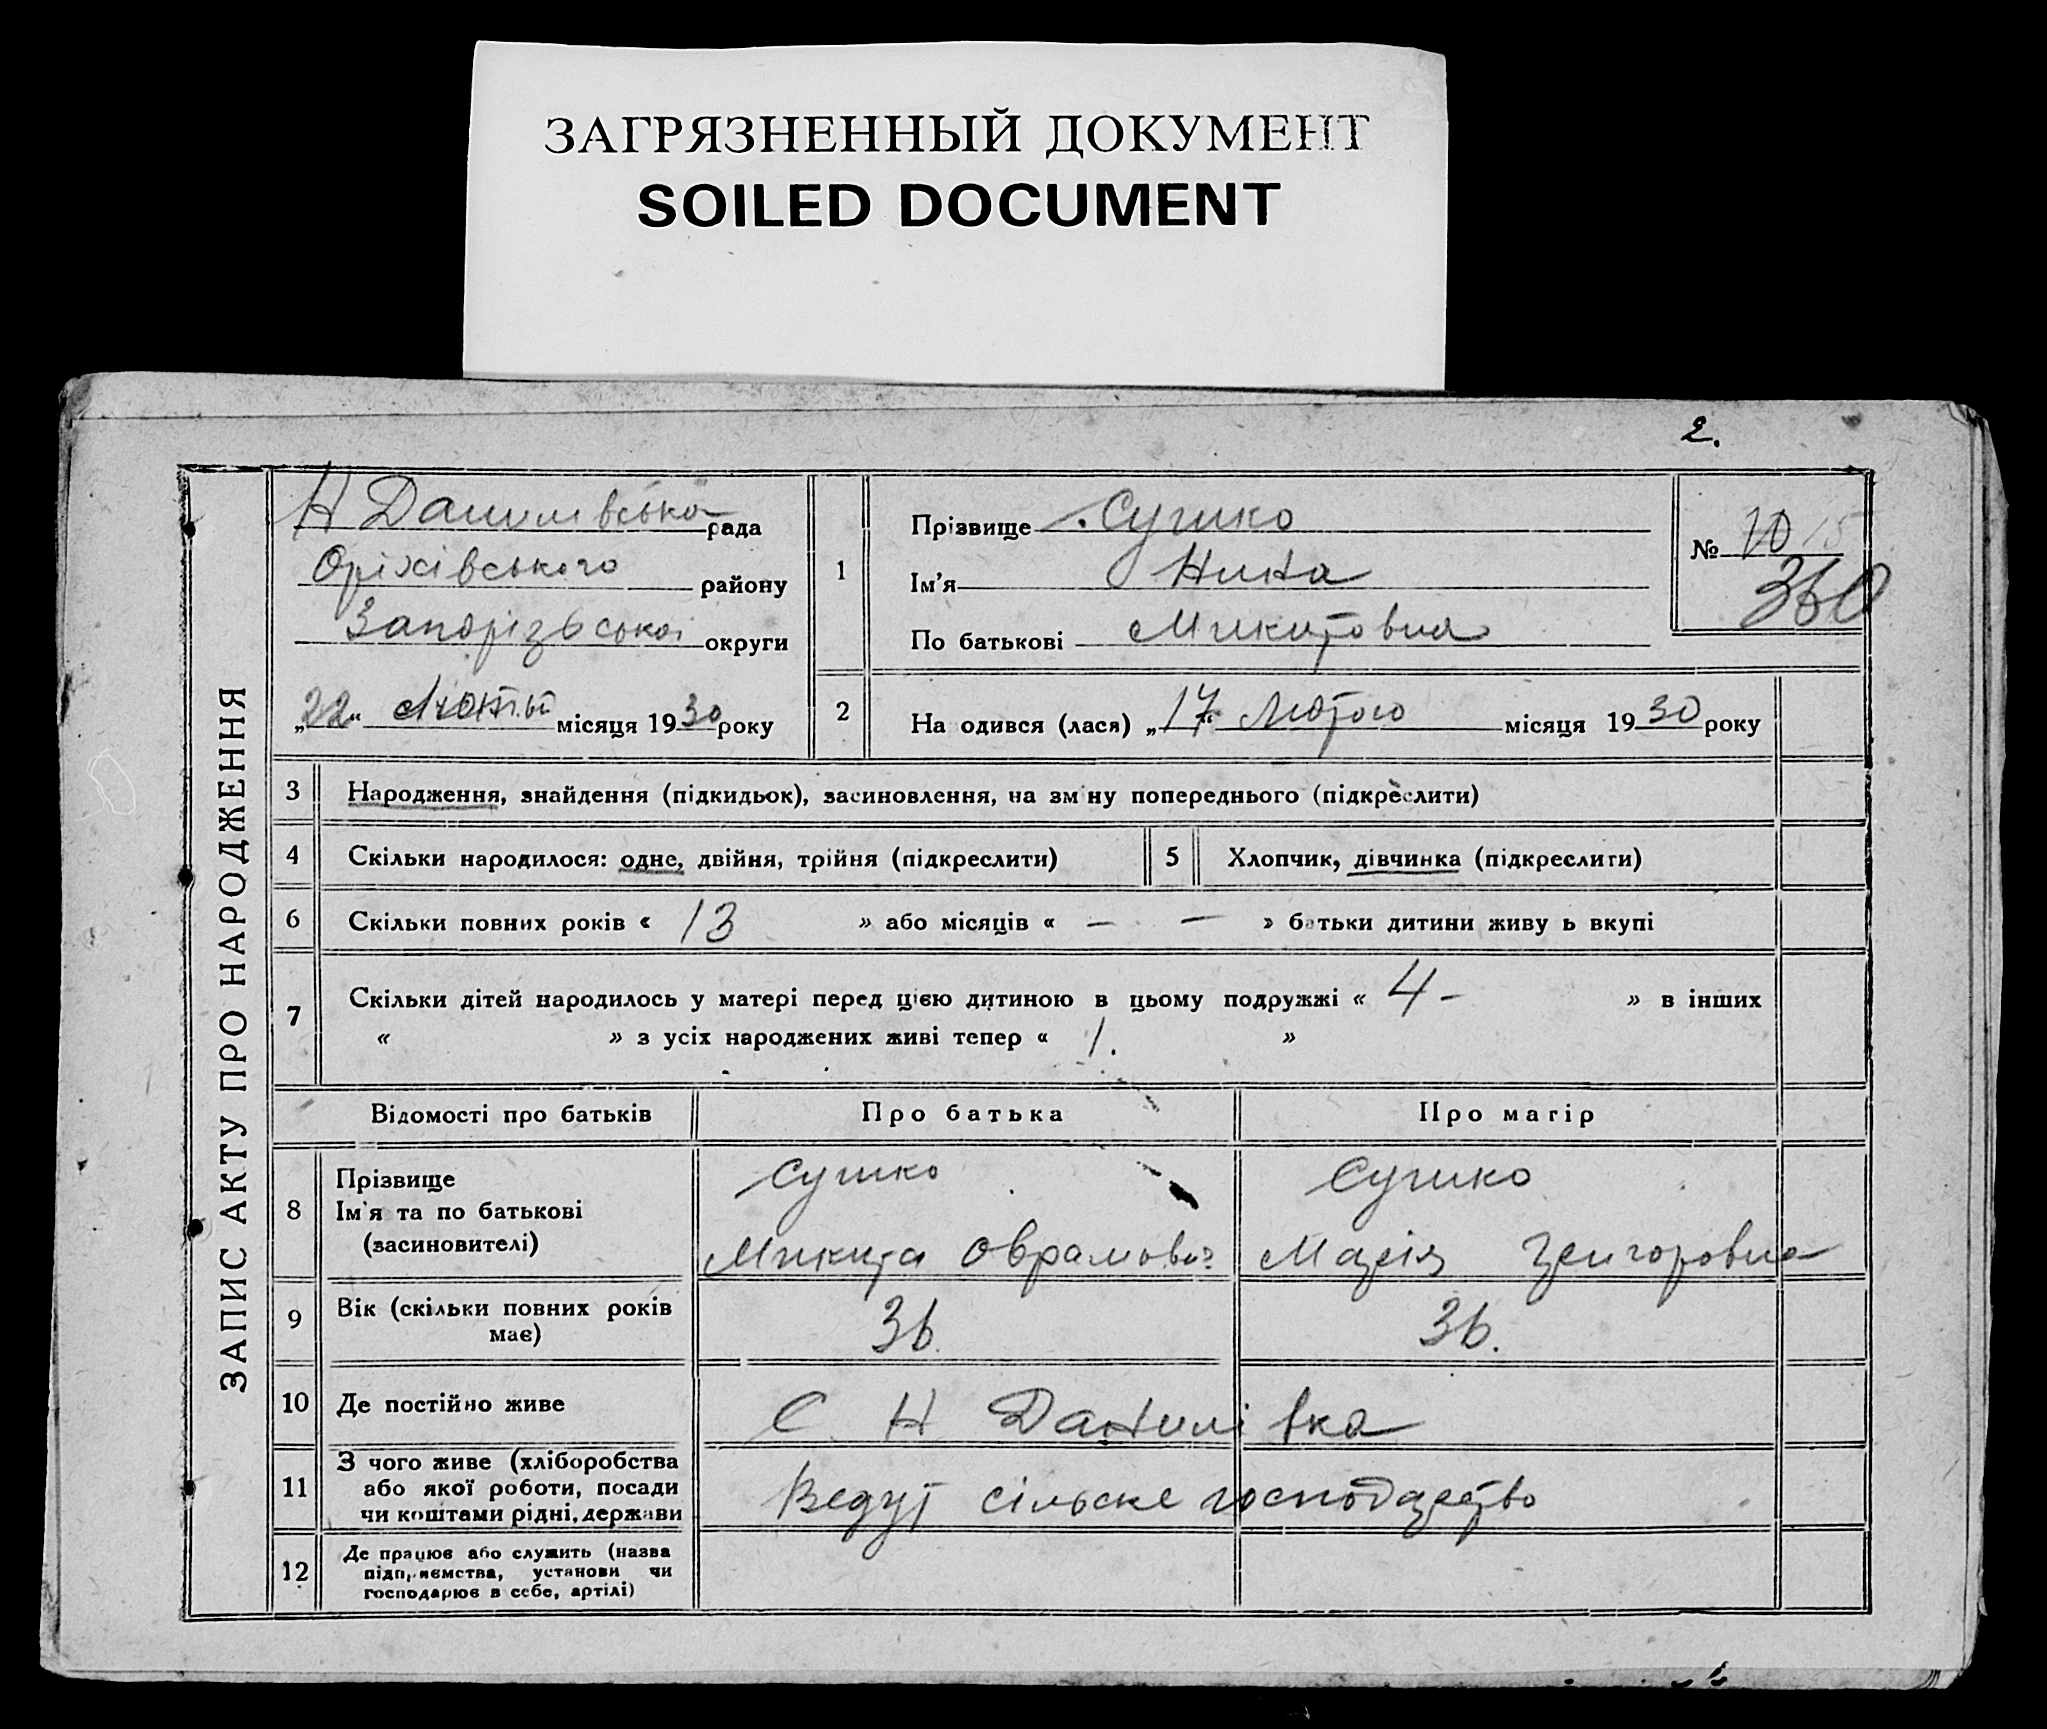 ЗАГРЯЗНЕННЫЙ ДОКУМЕНТ
SOILED DOCUMENT
2.
ЗАПИС АКТУ ПРО НАРОДЖЕННЯ
Н Данилівська рада
Оріхівського району
Запорізької округи
„22“ місяця 1930 року
1
Прізвище Сушко
Ім'я Нина
По батькові Микитовна
№ 10 15
360
2
На одився (лася) „17“ Лютого місяця 1930 року
3 Народження, знайдення (підкидьок), засиновлення, на зм ну попереднього (підкреслити)
4 Скільки народилося: одне, двійня, трійня (підкреслити)
5 Хлопчик, дівчинка (підкреслити)
6 Скільки повних років « 13 » або місяців « — — » батьки дитини живу ь вкупі
7 Скільки дітей народилось у матері перед цією дитиною в цьому подружжі « 4 – » в інших
« » з усіх народжених живі тепер « 1. »
Відомості про батьків Про батька Про матір
8 Прізвище
Ім'я та по батькові
(засиновителі)
Сушко
Микита Оврамович
Сушко
Марія Григоровна
9 Вік (скільки повних років
має)
36. 36.
10 Де постійно живе С. Н Данилівка
11 З чого живе (хліборобства
або якої роботи, посади
чи коштами рідні, держави
Ведут сільске господарство
12 Де працює або служить (назва
підприємства, установи чи
господарює в себе, артілі)